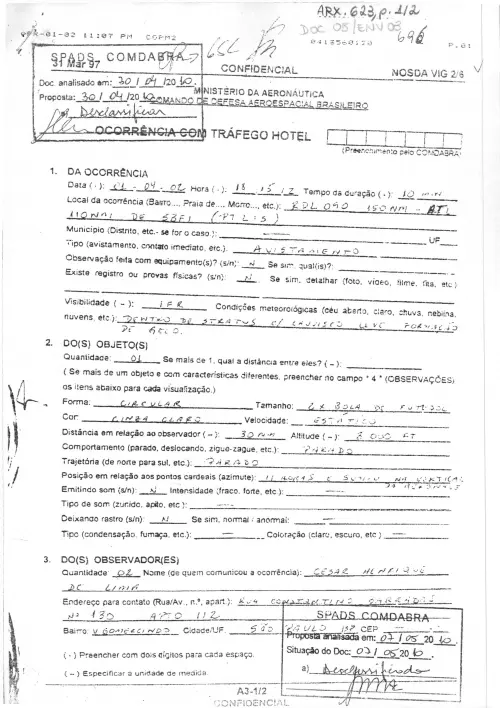 ARX. 623, p. 1/2
DOC 05/ENV 03
01-02 11:07 PM COPM2
P.01
SPADS COMDABRA
31 Mar 97
CONFIDENCIAL
NOSDA VIG 2/6
Doc. analisado em: 30/04/2010.
Proposta: 30/04/2010
Desclassificar
MINISTÉRIO DA AERONÁUTICA
COMANDO DE DEFESA AEROESPACIAL BRASILEIRO
OCORRÊNCIA COM TRÁFEGO HOTEL
(Preenchimento pelo COMDABRA)
1. DA OCORRÊNCIA
Data (-): 01-04-02 Hora (-): 18 15 / Z Tempo da duração (-): 10 MIN
Local da ocorrência (Bairro..., Praia de..., Morro..., etc.): RDL 090 150 NM
110NM DE SBFI
Município (Distrito, etc.- se for o caso): UF
Tipo (avistamento, contato imediato, etc.): AVISTAMENTO
Observação feita com equipamento(s)? (s/n): N Se sim, qual(is)?:
Existe registro ou provas físicas? (s/n): N Se sim, detalhar (foto, vídeo, filme, fita, etc.)
Visibilidade (~): IFR Condições meteorológicas (céu aberto, claro, chuva, neblina,
nuvens, etc): DENTRO DE STRATUS C/ LEVE FORMAÇÃO
DE GELO.
2. DO(S) OBJETO(S)
Quantidade: 01 Se mais de 1, qual a distância entre eles? (~):
(Se mais de um objeto e com características diferentes, preencher no campo "4" (OBSERVAÇÕES)
os itens abaixo para cada visualização.)
Forma: CIRCULAR Tamanho: 2 X BOLA DE FUTEBOL
Cor: CINZA CLARO Velocidade: ESTÁTICO
Distância em relação ao observador (~): 30 NM Altitude (~): FT
Comportamento (parado, deslocando, zigue-zague, etc.): PARADO
Trajetória (de norte para sul, etc.): PARADO
Posição em relação aos pontos cardeais (azimute): 11 HORAS E NA VERTICAL
Emitindo som (s/n): N Intensidade (fraco, forte, etc.):
Tipo de som (zunido, apito, etc):
Deixando rastro (s/n): N Se sim, normal / anormal:
Tipo (condensação, fumaça, etc.): Coloração (claro, escuro, etc)
3. DO(S) OBSERVADOR(ES)
Quantidade: 02 Nome (de quem comunicou a ocorrência): CESAR HENRIQUE
DE LIMA
Endereço para contato (Rua/Av., n.º, apart.): RUA CONSTANTINO
Nº 130 APTO 112
Bairro V GOMERCINDO Cidade/UF SÃO PAULO SP CEP
(-) Preencher com dois dígitos para cada espaço.
(~) Especificar a unidade de medida.
SPADS COMDABRA
Proposta analisada em: 07/05 2010
Situação do Doc: 07/05 2010.
a) Desclassificado
A3-1/2
CONFIDENCIAL